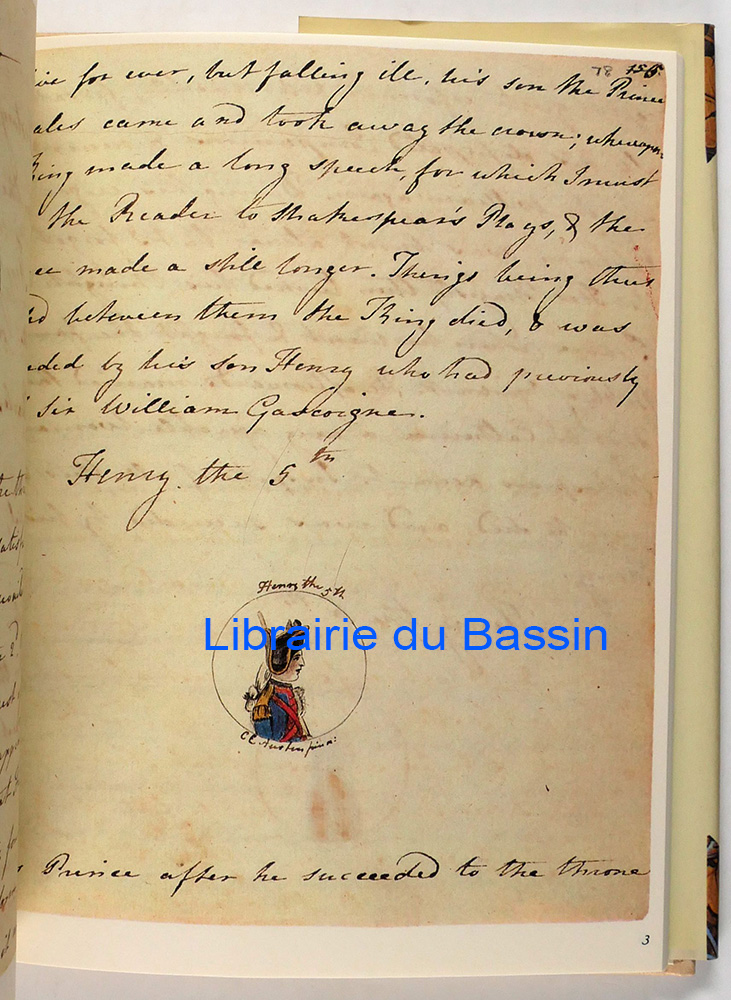 78 156.
ive for ever, but falling ill, his son the Prince
ales came and took away the crown; whereupon
King made a long speech, for which I must
the Reader to Shakespear's Plays, & the
ce made a still longer. Things being thus
ed between them the King died, & was
eded by his son Henry who had previously
Sir William Gascoigne.
Henry the 5th
Henry the 5th
Librairie du Bassin
C E Austen pinx:
Prince after he succeeded to the throne
3